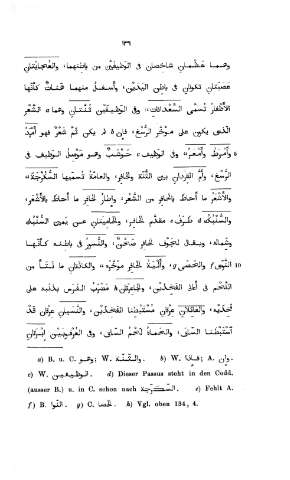 ١٣٦
وهما عظمان شاخصان فى الوظيفين من باطنهما، والعجايتان
عصبتان تكونان فى باطن اليدين، وأسفل منهما هنات كأنها
الأظفار تسمى السعدانات، وفى الوظيفين ثنتان وهما الشعر
الذى يكون على مؤخر الرسغ، فإن لم يكن ثم شعر فهو أمرد
وأمرط وأمعر، وفى الوظيف حوشب وهو موصل الوظيف فى
الرسغ، وأم القردان بين الثنة والحافر، والعامة تسميها السكرجة،
والأشعر ما أحاط بالحافر من الشعر، وإطار الحافر ما أحاط بالأشعر،
والسنبك طرف مقدم الحافر، والحاميتان عن يمين السنبك
وشماله، ويقال لجوف الحافر صاحن، والنسور فى باطنه كأنها
النوى والحصى، وألية الحافر مؤخره، والكاذتان ما نتأ من
اللحم فى أعالى الفخذين، والجاعرتان مضرب الفرس بذنبه على
فخذيه، والفائلان عرقان مستبطنا الفخذين، والنسيان عرقان قد
استبطنا الساقين، والحماة لحم الساق، وفى العرقوبين إبرتان
a) B. u. C. وهو; W. والقمنة. b) W. فاذا; A. وان.
c) W. الوظيفين. d) Dieser Passus steht in den Codd.
(ausser B.) u. in C. schon nach السكرجة. e) Fehlt A.
f) B. النوا. g) C. الحصا. h) Vgl. oben 134, 4.